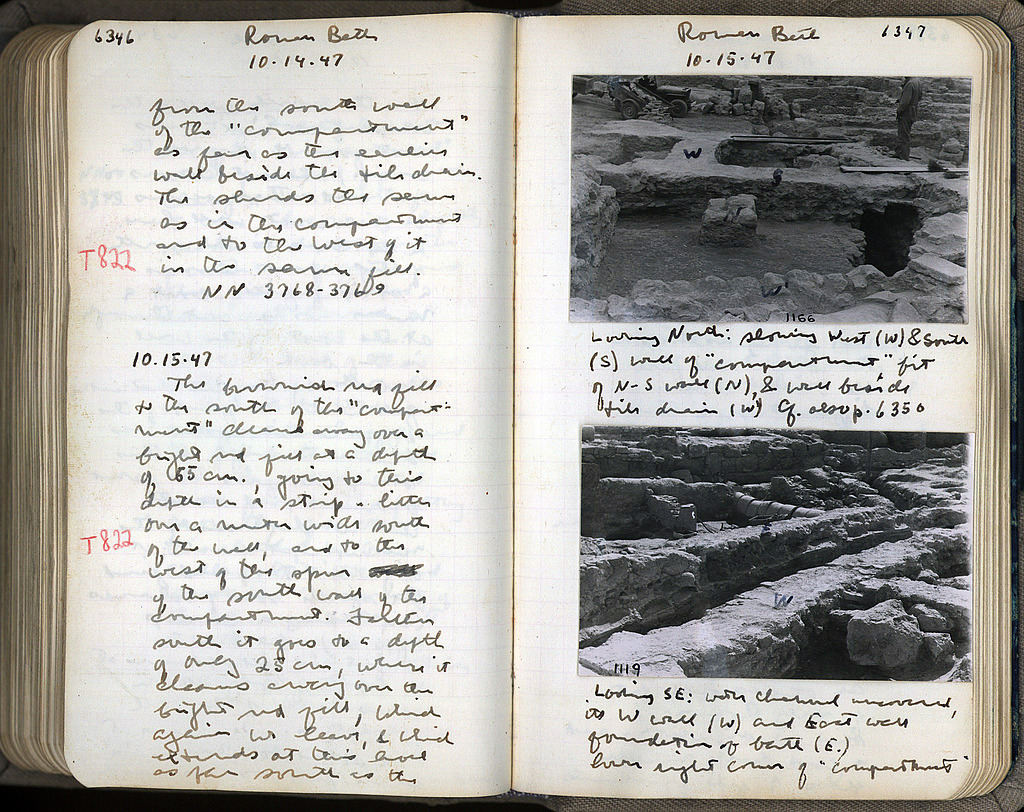 6346
Roman Bath
10.14.47
from the south wall
of the "compartment"
as far as the earlier
wall beside the tile drain.
The sherds the same
as in the compartment
and to the west of it
T822
in the same fill.
NN 3768-3769
10.15.47
The brownish red fill
to the south of the "compart-
ment" cleared away over a
bright red fill at a depth
of 55 cm., going to this
depth in a strip a little
over a meter wide south
T822
of the wall, and to the
west of the spur
of the south wall of the
compartment. Farther
south it goes to a depth
of only 25 cm, where it
cleans away over the
bright red fill, which
again we leave, & which
extends at this level
as far south as the
Roman Bath
6347
10.15.47
W
W
1166
Looking North: showing West (W) & South
(S) wall of "compartment", fit
of N-S wall (N), & wall beside
tile drain (W) Cf. also p. 6350
W
1119
Looking SE: with channel uncovered,
its W wall (W) and East wall
foundation of bath (E.)
lower right corner of "compartment"